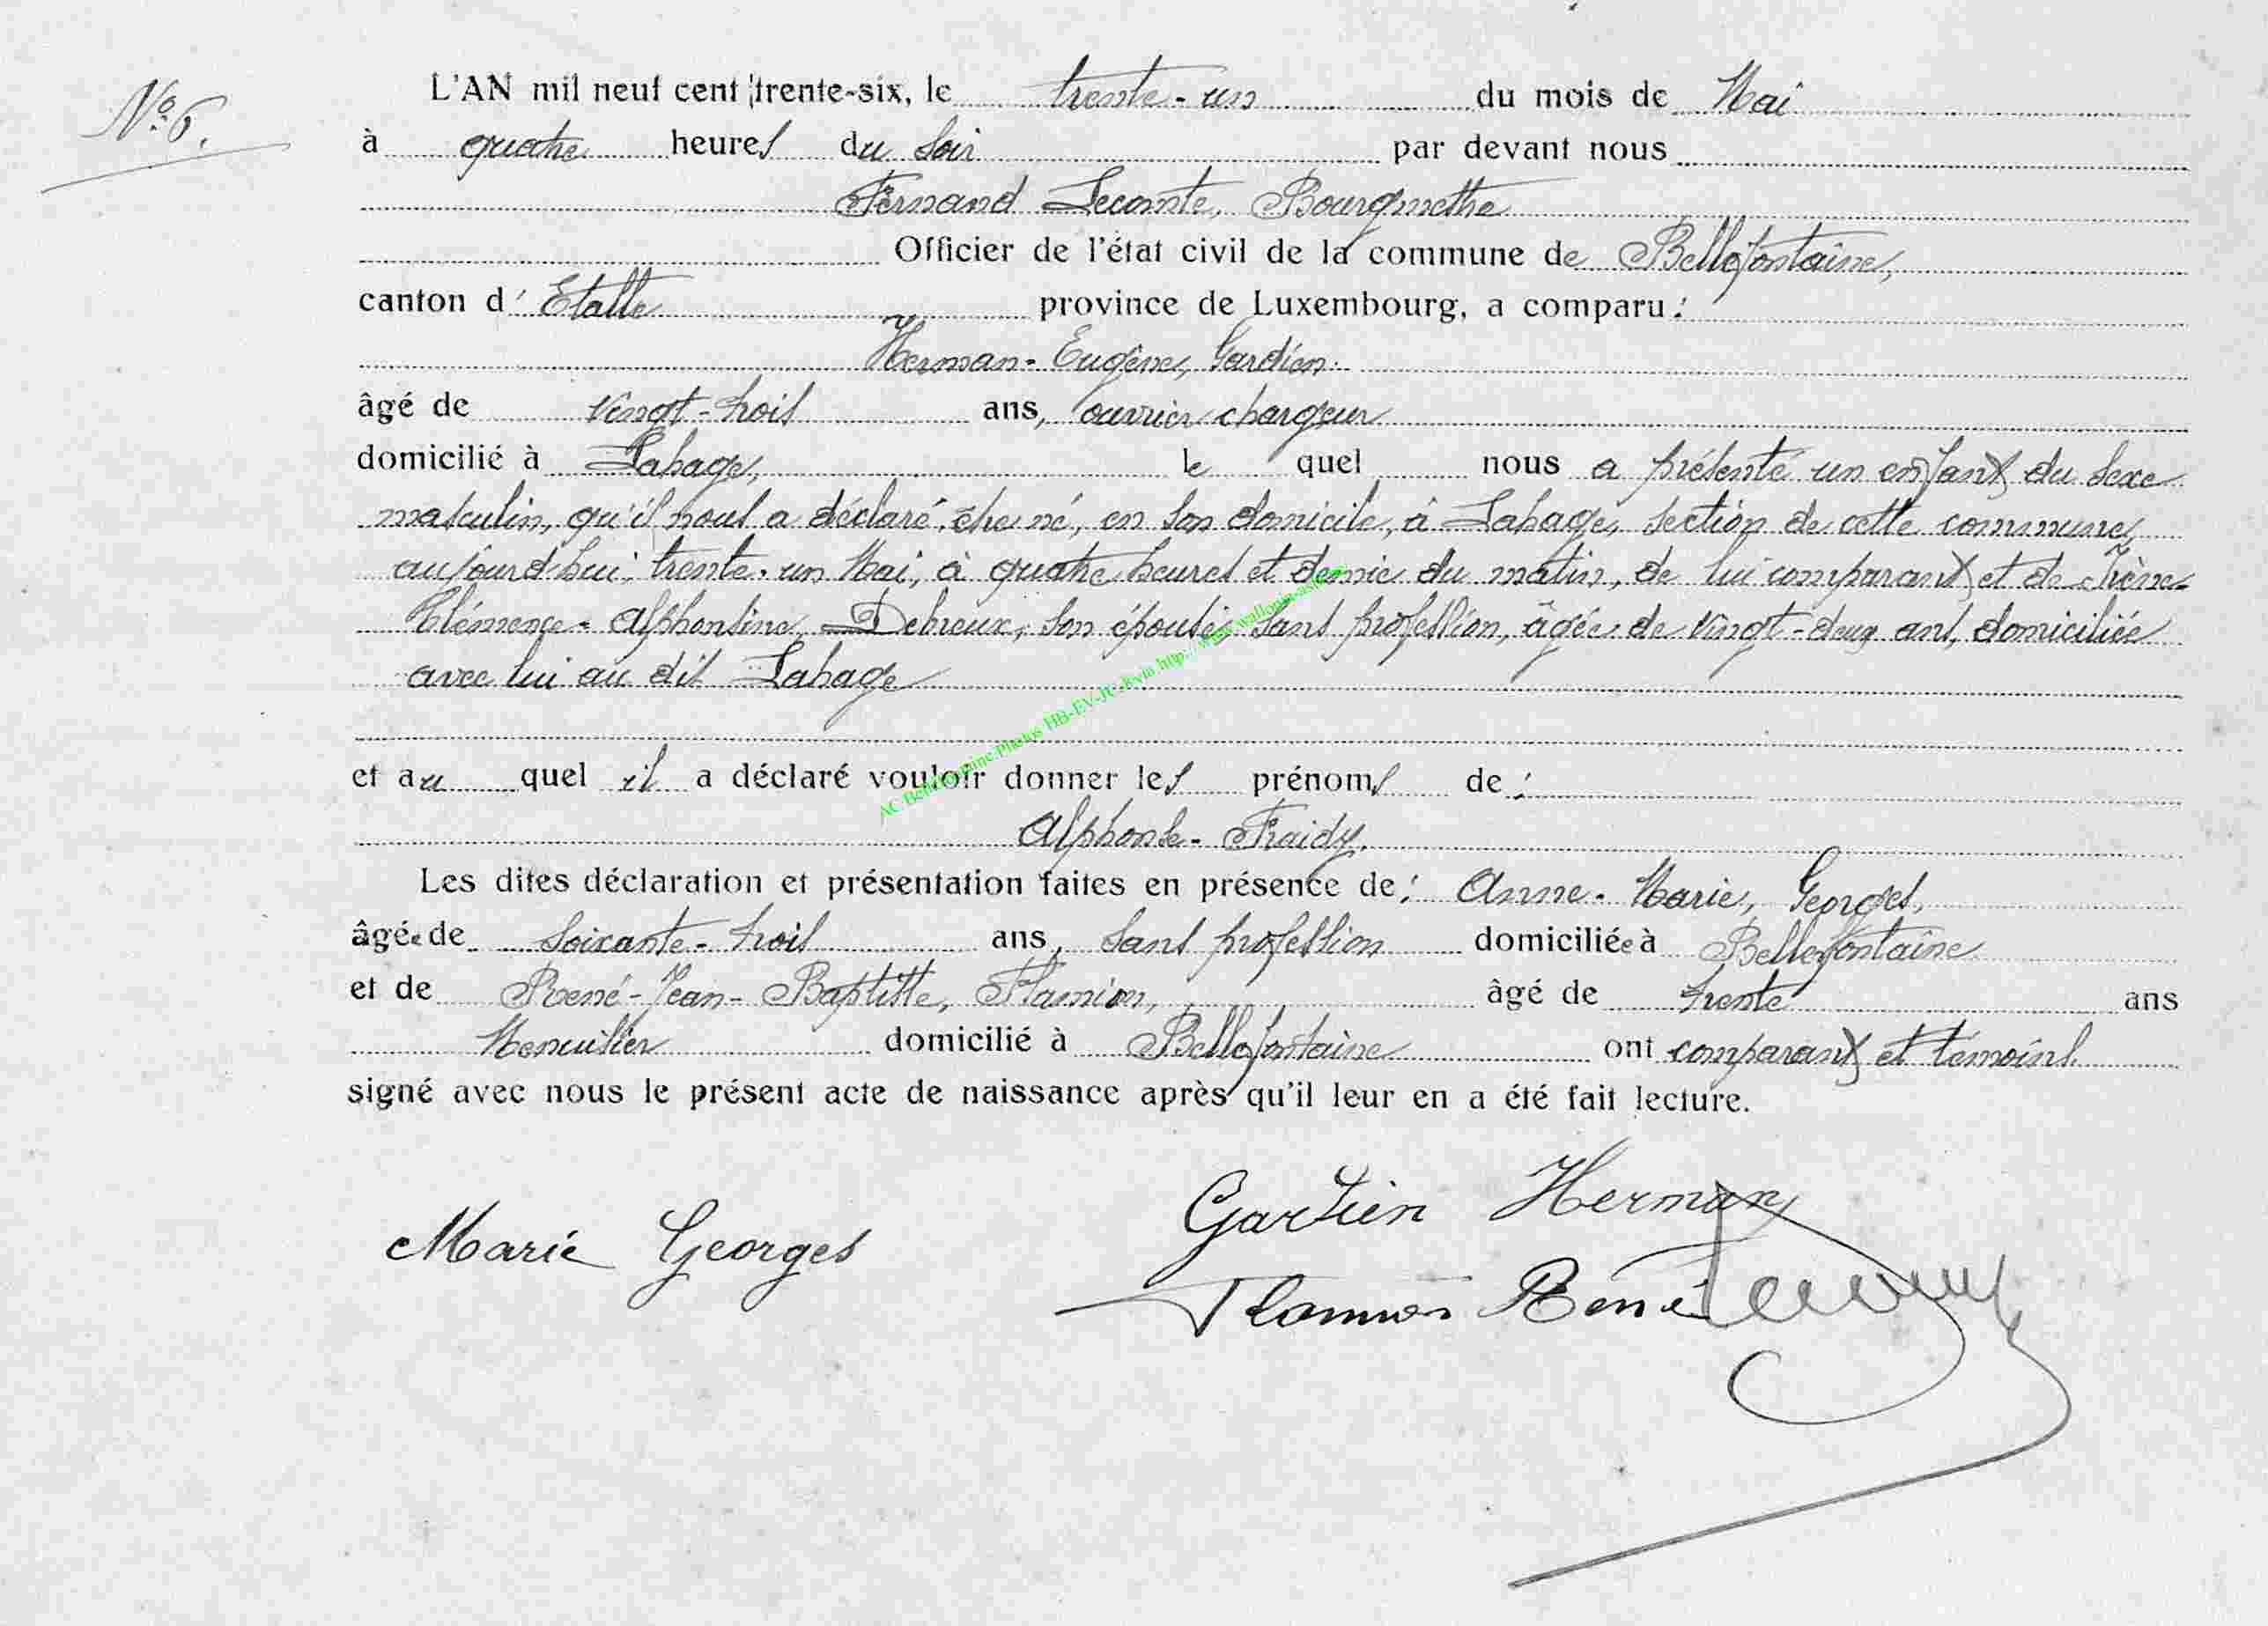 N° 6.
L'AN mil neuf cent trente-six, le trente-un du mois de Mai
à quatre heures du soir par devant nous
Fernand Lecomte, Bourgmestre
Officier de l'état civil de la commune de Bellefontaine,
canton d'Etalle province de Luxembourg, a comparu :
Herman-Eugène, Gardien.
âgé de vingt-trois ans, ouvrier chargeur
domicilié à Lahage, le quel nous a présenté un enfant du sexe
masculin, qu'il nous a déclaré être né, en son domicile, à Lahage, section de cette commune,
aujourd'hui, trente-un Mai, à quatre heures et demie du matin, de lui comparant et de Irène-
Clémence-Alphonsine, Debreux, son épouse, sans profession, âgée de vingt-deux ans, domiciliée
avec lui au dit Lahage
et au quel il a déclaré vouloir donner les prénoms de :
Alphonse-Fraidy.
Les dites déclaration et présentation faites en présence de : Anne-Marie, Georges,
âgée de soixante-trois ans, sans profession domiciliée à Bellefontaine
et de René-Jean-Baptiste, Flamion, âgé de trente ans
Menuisier domicilié à Bellefontaine ont comparant et témoins
signé avec nous le présent acte de naissance après qu'il leur en a été fait lecture.
Gardien Herman
Marie Georges
Flamion René
AC Bellefontaine Photos HB-EV-JC-R via http://www.wallonia-asbl